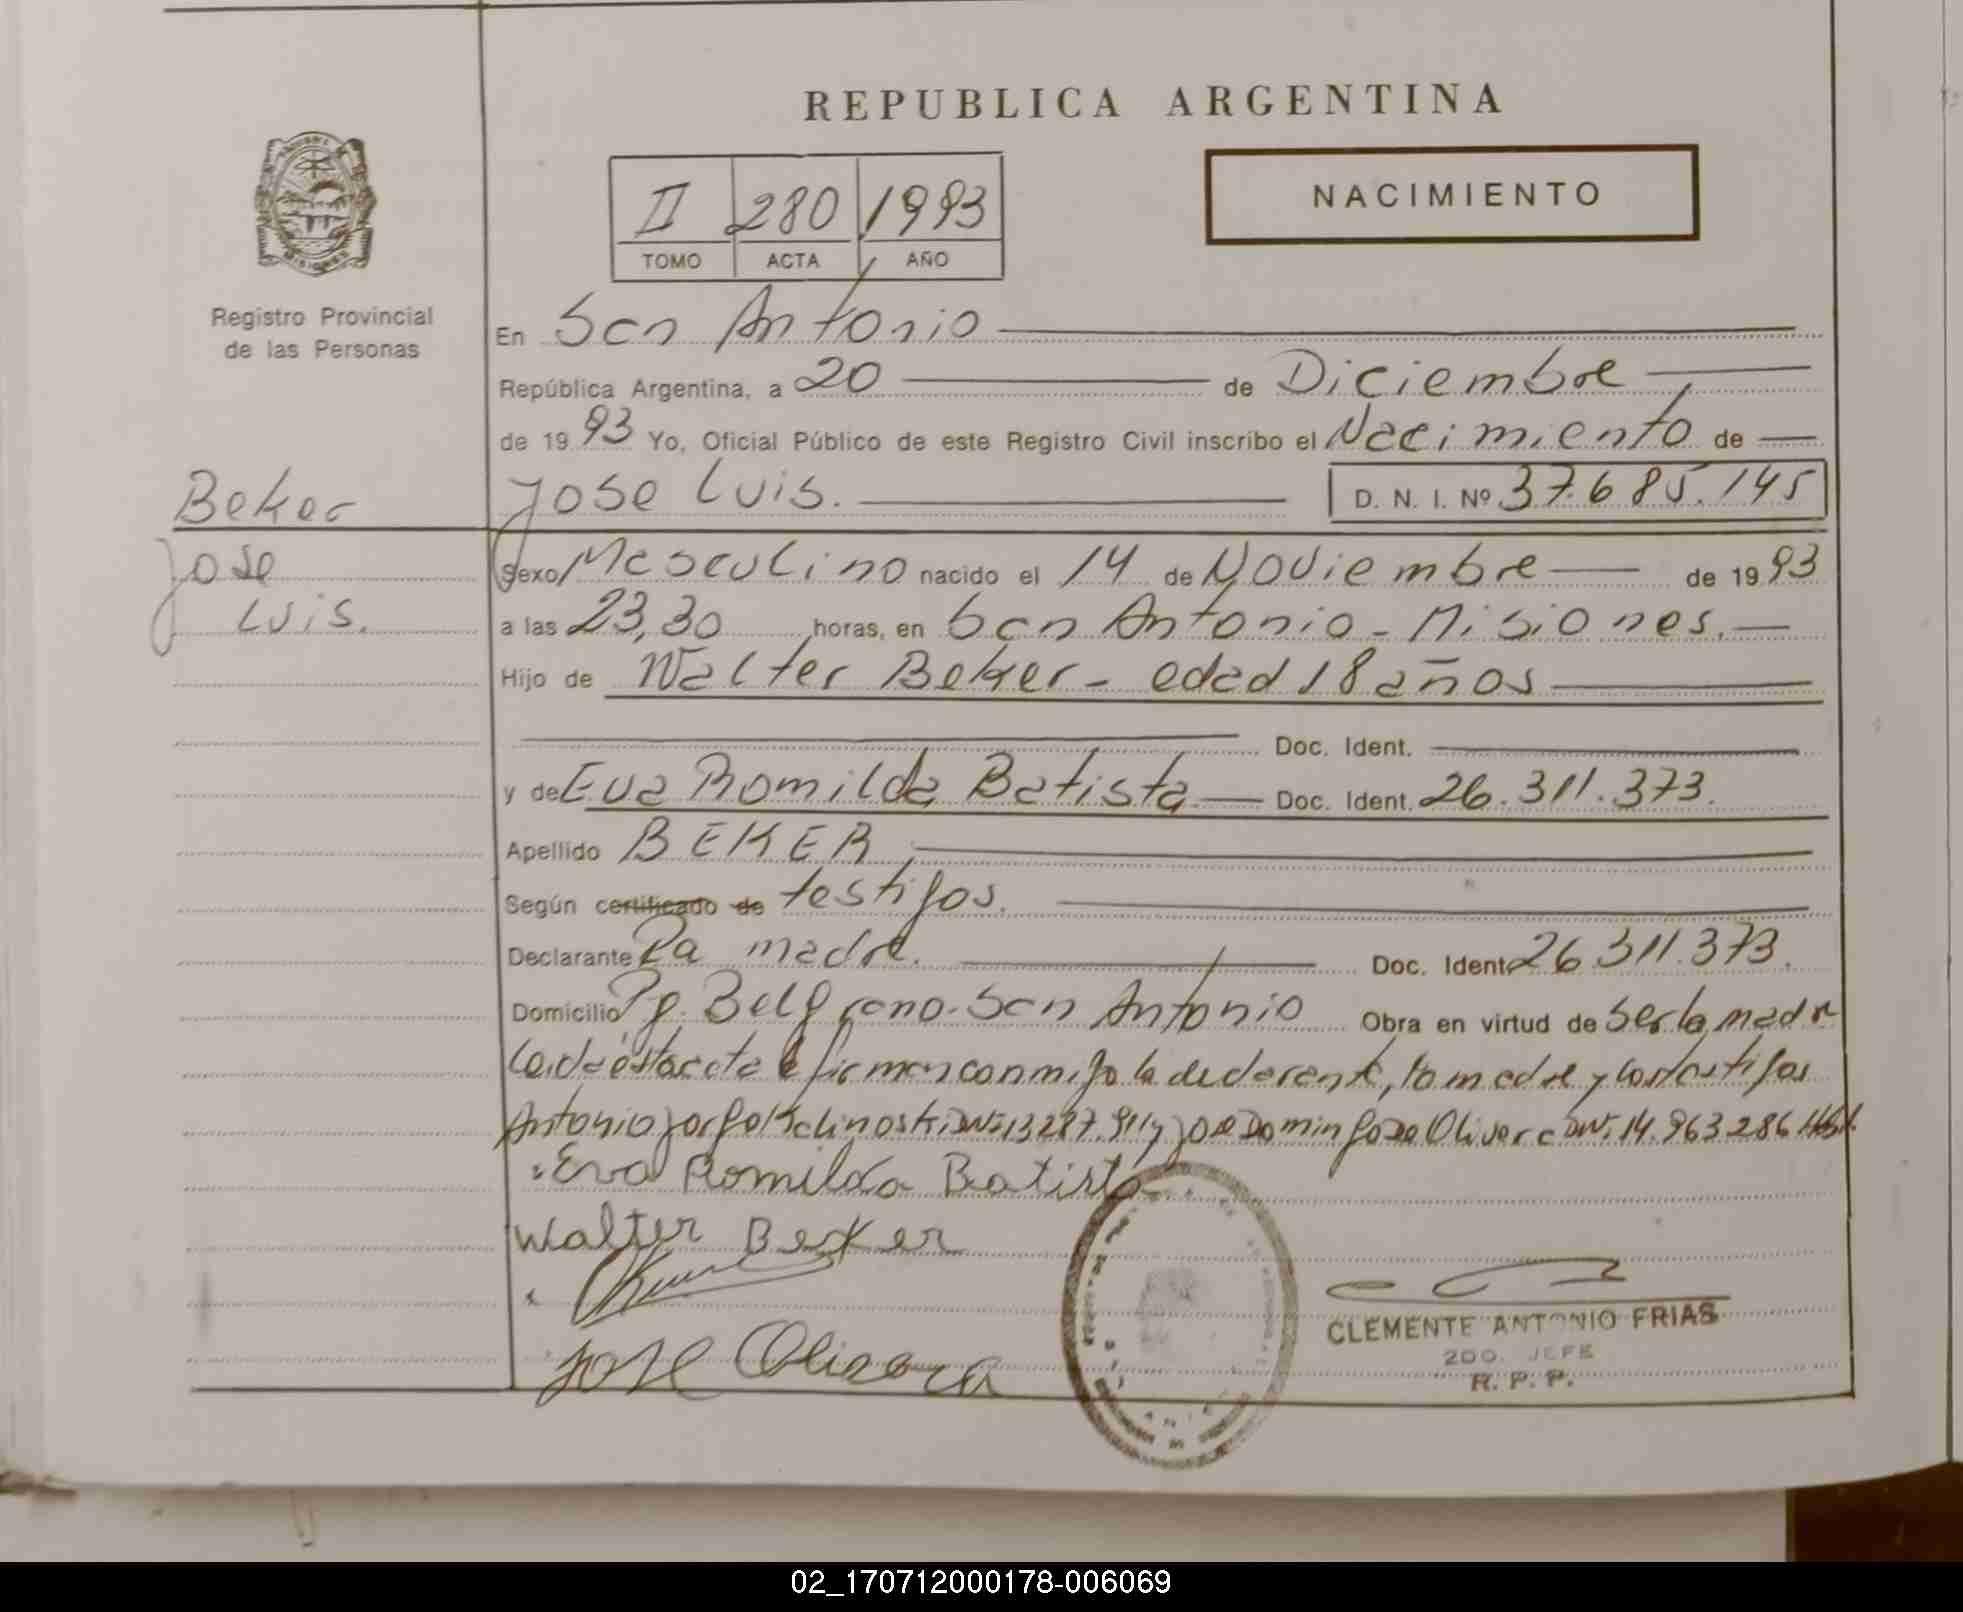 REPUBLICA ARGENTINA
NACIMIENTO
II 280 1993
TOMO ACTA AÑO
Registro Provincial
de las Personas
En San Antonio
República Argentina, a 20 de Diciembre
de 1993 Yo, Oficial Público de este Registro Civil inscribo el Nacimiento de
Beker
Jose Luis. D. N. I. Nº 37.685.145
Jose
Luis.
Sexo Masculino nacido el 14 de Noviembre de 1993
a las 23,30 horas, en San Antonio - Misiones.
Hijo de Walter Beker - edad 18 años
Doc. Ident.
y de Eva Romilda Batista Doc. Ident. 26.311.373.
Apellido BEKER
Según certificado de testigos.
Declarante La madre. Doc. Ident 26.311.373.
Domicilio Pje. Belgrano - San Antonio Obra en virtud de ser la madre
Leida esta acta firman conmigo la declarante, la madre y los testigos
Antonio Jorge Kalinoski DNI. 13.287.911 y Jose Domingo De Olivera DNI. 14.963.286
Eva Romilda Batista
Walter Becker
Jose Olivera
CLEMENTE ANTONIO FRIAS
2DO. JEFE
R. P. P.
02_170712000178-006069